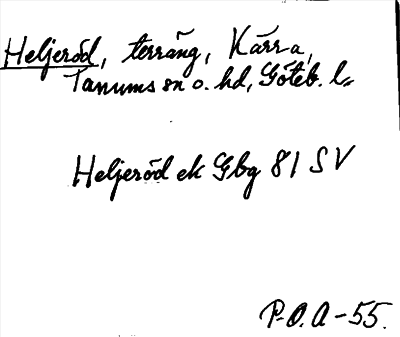 Heljeröd, terräng, Kärra,
Tanums sn o. hd, Göteb. l.
Heljeröd ek Gbg 81 SV
P.O.A-55.